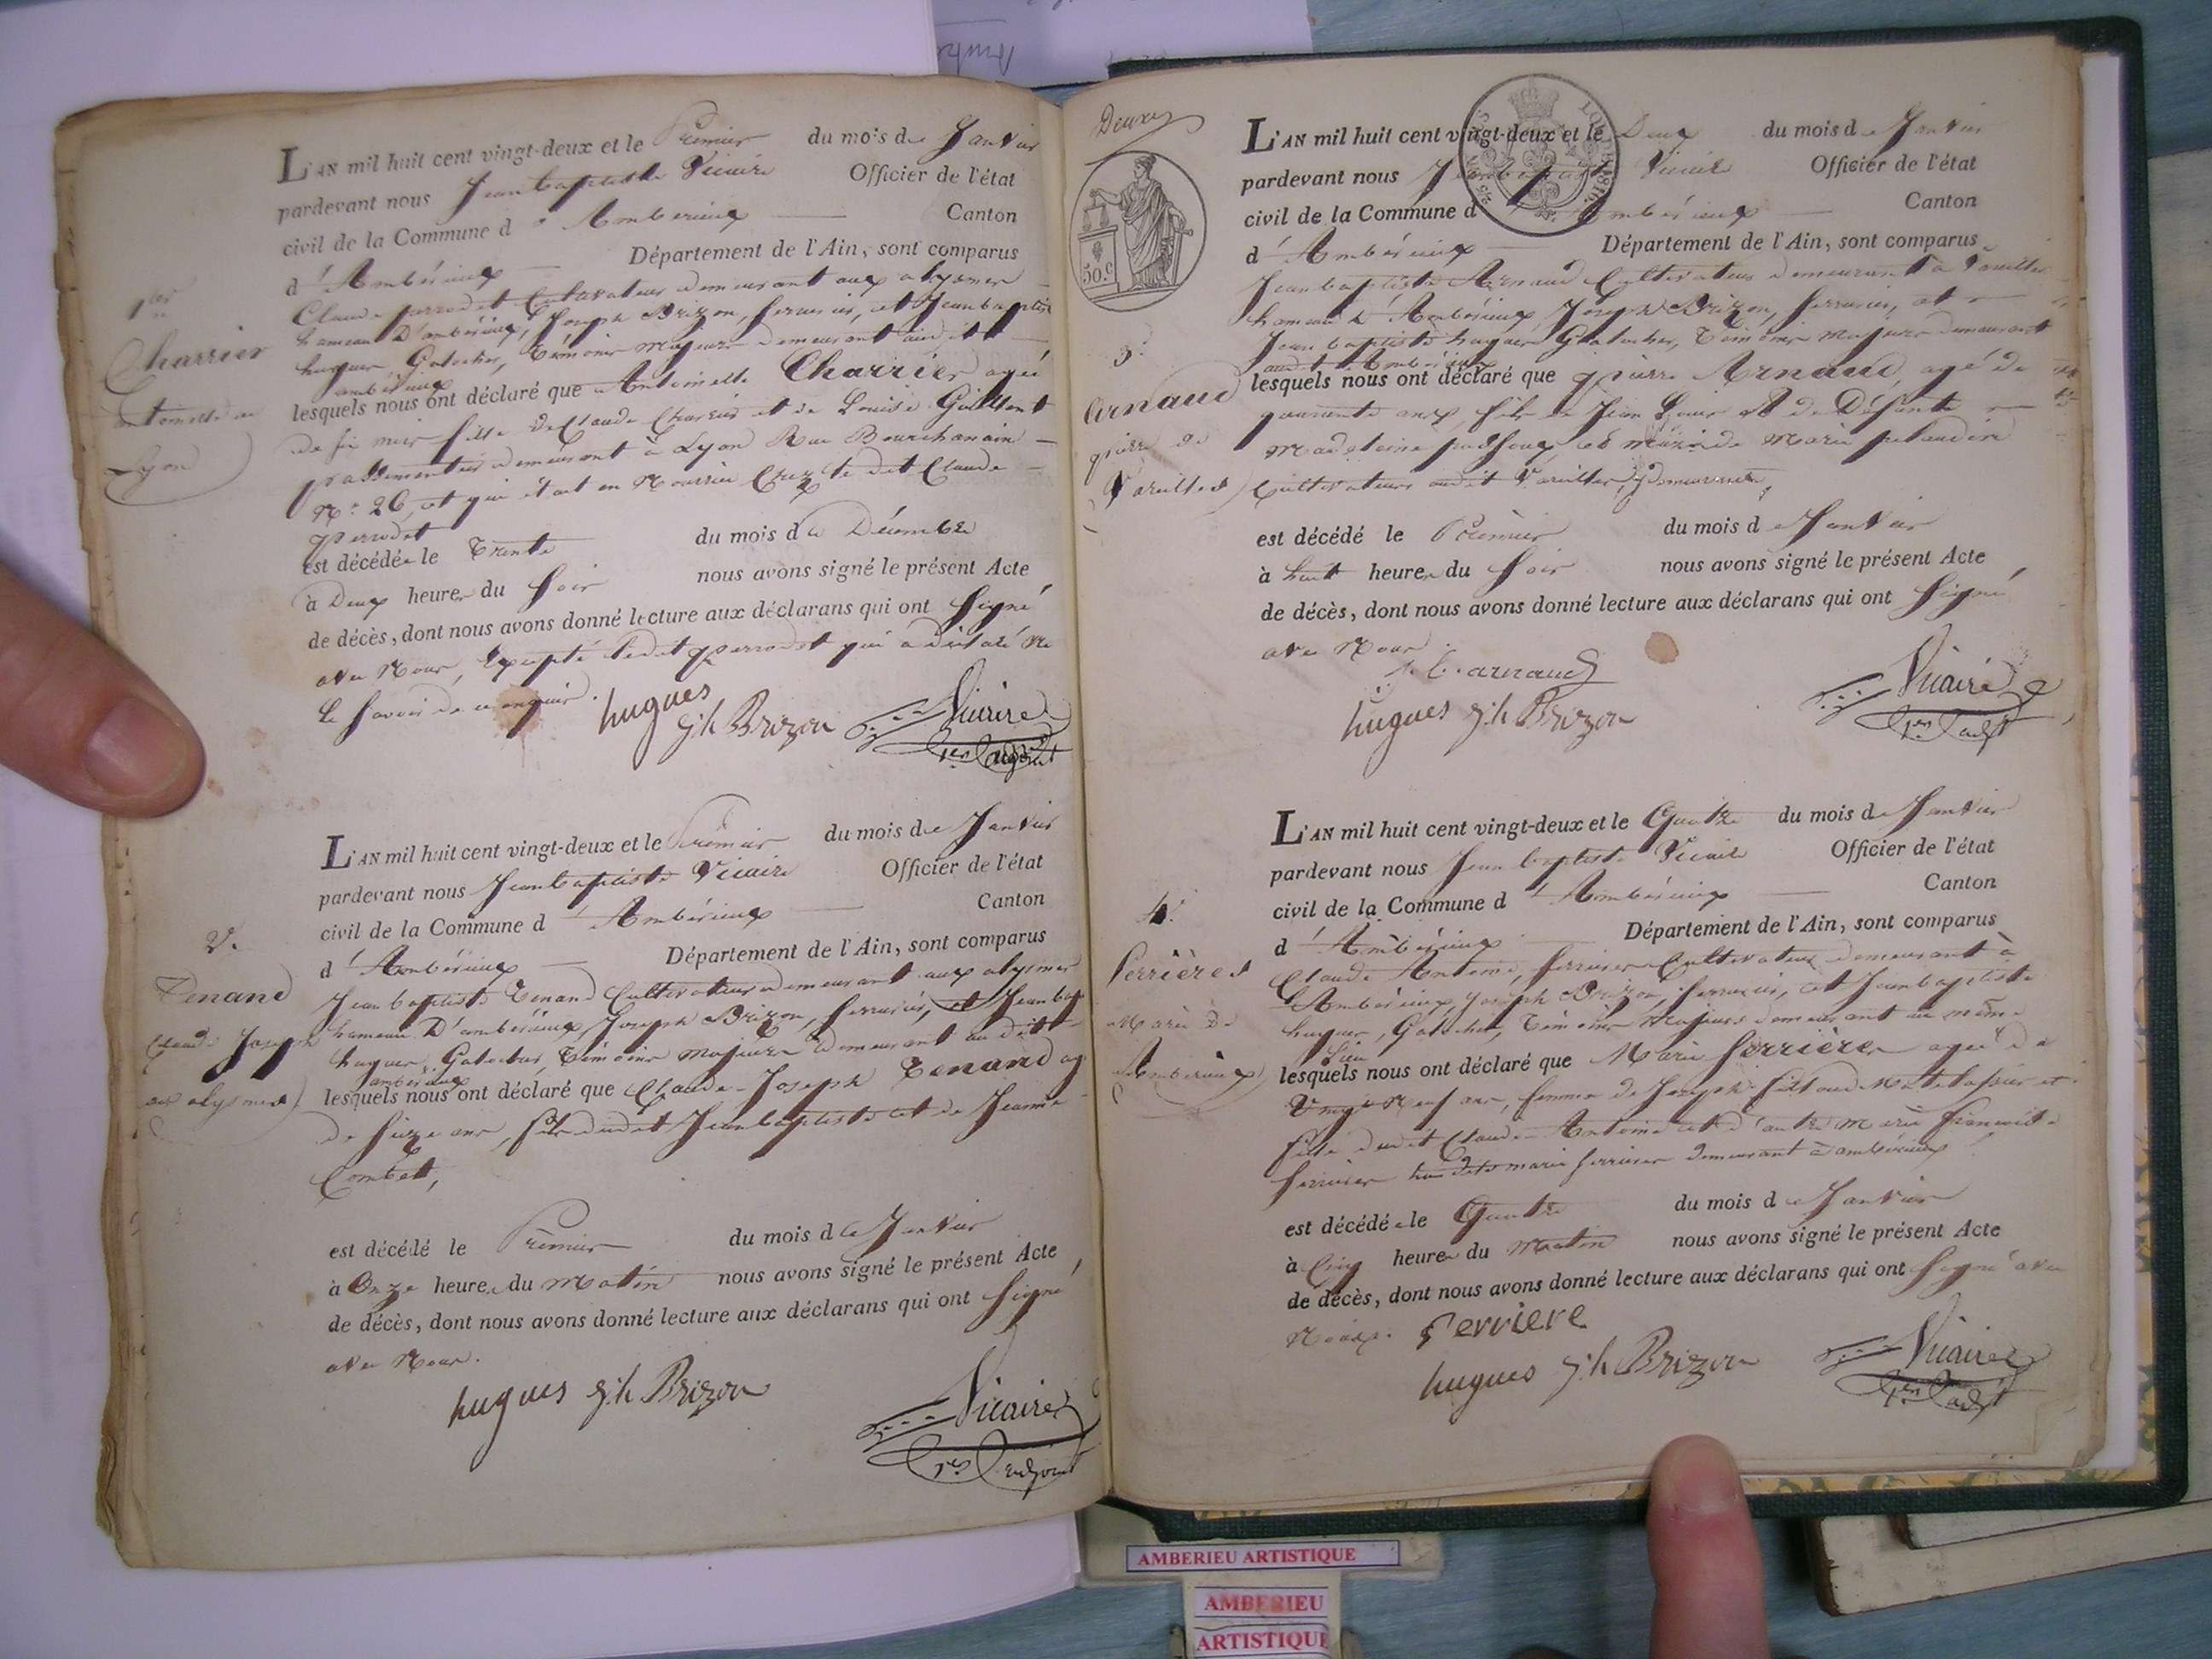 L'AN mil huit cent vingt-deux et le Premier du mois de Janvier
pardevant nous Jean baptiste Vicaire Officier de l'état
civil de la Commune d' Ambérieux Canton
d' Ambérieux Département de l'Ain, sont comparus
Claude perrodet Cultivateur demeurant aux alymes
hameau D'ambérieux, Joseph Brizon, serrurier, et Jean baptiste
hugues, Galocher, Témoins majeurs demeurant audit
ambérieux
1er
Charrier
antoinette de
Lyon
lesquels nous ont déclaré que Antoinette Charrier agée
de six mois fille de Claude Charrier et de Louise
passementier demeurant à Lyon Rue Bourchanin
No. 26, et qui était en Nourrice Chez le dit Claude
perrodet
est décédée le Trente du mois de Décembre
à Deux heures du soir nous avons signé le présent Acte
de décès, dont nous avons donné lecture aux déclarans qui ont signé
avec Nous, Excepté ledit perrodet qui a déclaré ne
le savoir de ce enquis.
hugues jh Brizon Vicaire
1er adjoint
L'AN mil huit cent vingt-deux et le Premier du mois de Janvier
pardevant nous Jean baptiste Vicaire Officier de l'état
civil de la Commune d' Ambérieux Canton
d' Ambérieux Département de l'Ain, sont comparus
2.
Tenand
Claude Joseph
aux alymes
Jean baptiste Tenand Cultivateur demeurant aux alymes
hameau D'ambérieux, Joseph Brizon, serrurier, et Jean bap
hugues, Galocher, Témoins majeurs demeurant audit
ambérieux
lesquels nous ont déclaré que Claude-Joseph Tenand ag
de seize ans, fils dudit Jean baptiste et de Jeanne
Combet,
est décédé le Premier du mois de Janvier
à Onze heures du Matin nous avons signé le présent Acte
de décès, dont nous avons donné lecture aux déclarans qui ont signé
avec Nous.
hugues jh Brizon Vicaire
1er adjoint
Deux
50.c
L'AN mil huit cent vingt-deux et le Deux du mois de Janvier
pardevant nous Jean baptiste Vicaire Officier de l'état
civil de la Commune d' Ambérieux Canton
d' Ambérieux Département de l'Ain, sont comparus
Jean baptiste Arnaud Cultivateur demeurant à Vareilles
hameau d'Ambérieux, Joseph Brizon, serrurier, et
Jean baptiste hugues Galocher, Témoins majeurs demeurant
audit Ambérieux
3.
Arnaud
pierre de
Vareilles
lesquels nous ont déclaré que pierre Arnaud, agé de
quarante ans, fils de Jean Louis et de Défunte
Madeleine et mari de Marie
Cultivateur audit Vareilles, y demeurant,
est décédé le Premier du mois de Janvier
à huit heures du soir nous avons signé le présent Acte
de décès, dont nous avons donné lecture aux déclarans qui ont signé
avec Nous
j. b. arnaud
hugues jh Brizon Vicaire
1er adjt
L'AN mil huit cent vingt-deux et le Quatre du mois de Janvier
pardevant nous Jean baptiste Vicaire Officier de l'état
civil de la Commune d' Ambérieux Canton
d' Ambérieux Département de l'Ain, sont comparus
4.
Ferrières
Marie De
Ambérieux
Claude Antoine, ferrieres Cultivateur demeurant à
Ambérieux, Joseph Brizon, serrurier, et Jean baptiste
hugues, Galocher, Témoins majeurs demeurant au même
Lieu
lesquels nous ont déclaré que Marie ferrières agée de
Vingt Neuf ans, femme de Joseph Matelassier et
fille dudit Claude Antoine et d'autre Marie françoise
ferrieres demeurant à ambérieux
est décédée le Quatre du mois de Janvier
à Cinq heures du Matin nous avons signé le présent Acte
de décès, dont nous avons donné lecture aux déclarans qui ont signé avec
Nous. ferriere
hugues jh Brizon Vicaire
1er adjt
AMBERIEU ARTISTIQUE
AMBERIEU
ARTISTIQUE